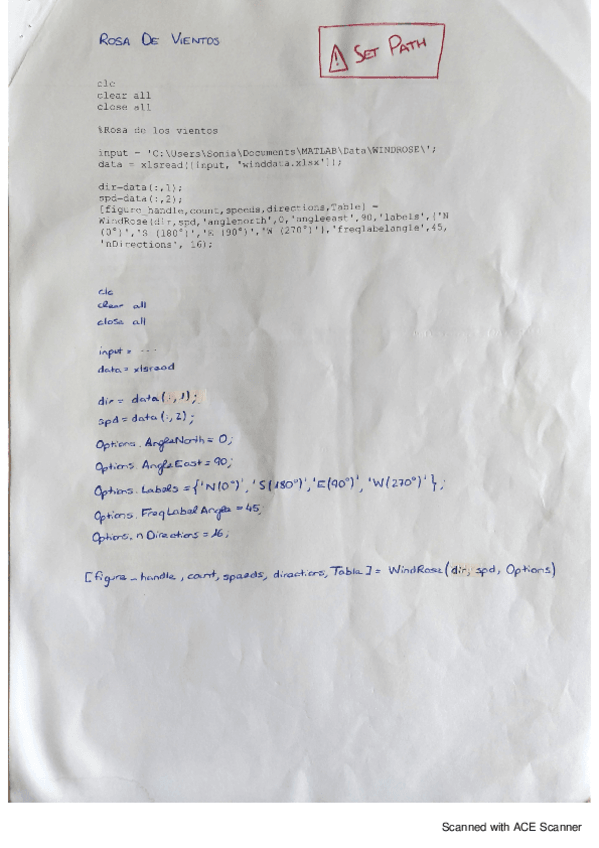 ROSA DE VIENTOS
⚠ SET PATH
clc
clear all
close all
%Rosa de los vientos
input = 'C:\Users\Sonia\Documents\MATLAB\Data\WINDROSE\';
data = xlsread([input, 'winddata.xlsx']);
dir=data(:,1);
spd=data(:,2);
[figure_handle,count,speeds,directions,Table] =
WindRose(dir,spd,'anglenorth',0,'angleeast',90,'labels',{'N
(0°)','S (180°)','E (90°)','W (270°)'},'freqlabelangle',45,
'nDirections', 16);
clc
clear all
close all
input = ....
data = xlsread
dir = data(:,1);
spd = data(:,2);
Options.AngleNorth = 0;
Options.AngleEast = 90;
Options.Labels = {'N(0°)', 'S(180°)', 'E(90°)', 'W(270°)'};
Options.FreqLabelAngle = 45;
Options.nDirections = 16;
[figure_handle, count, speeds, directions, Table] = WindRose(dir, spd, Options)
Scanned with ACE Scanner